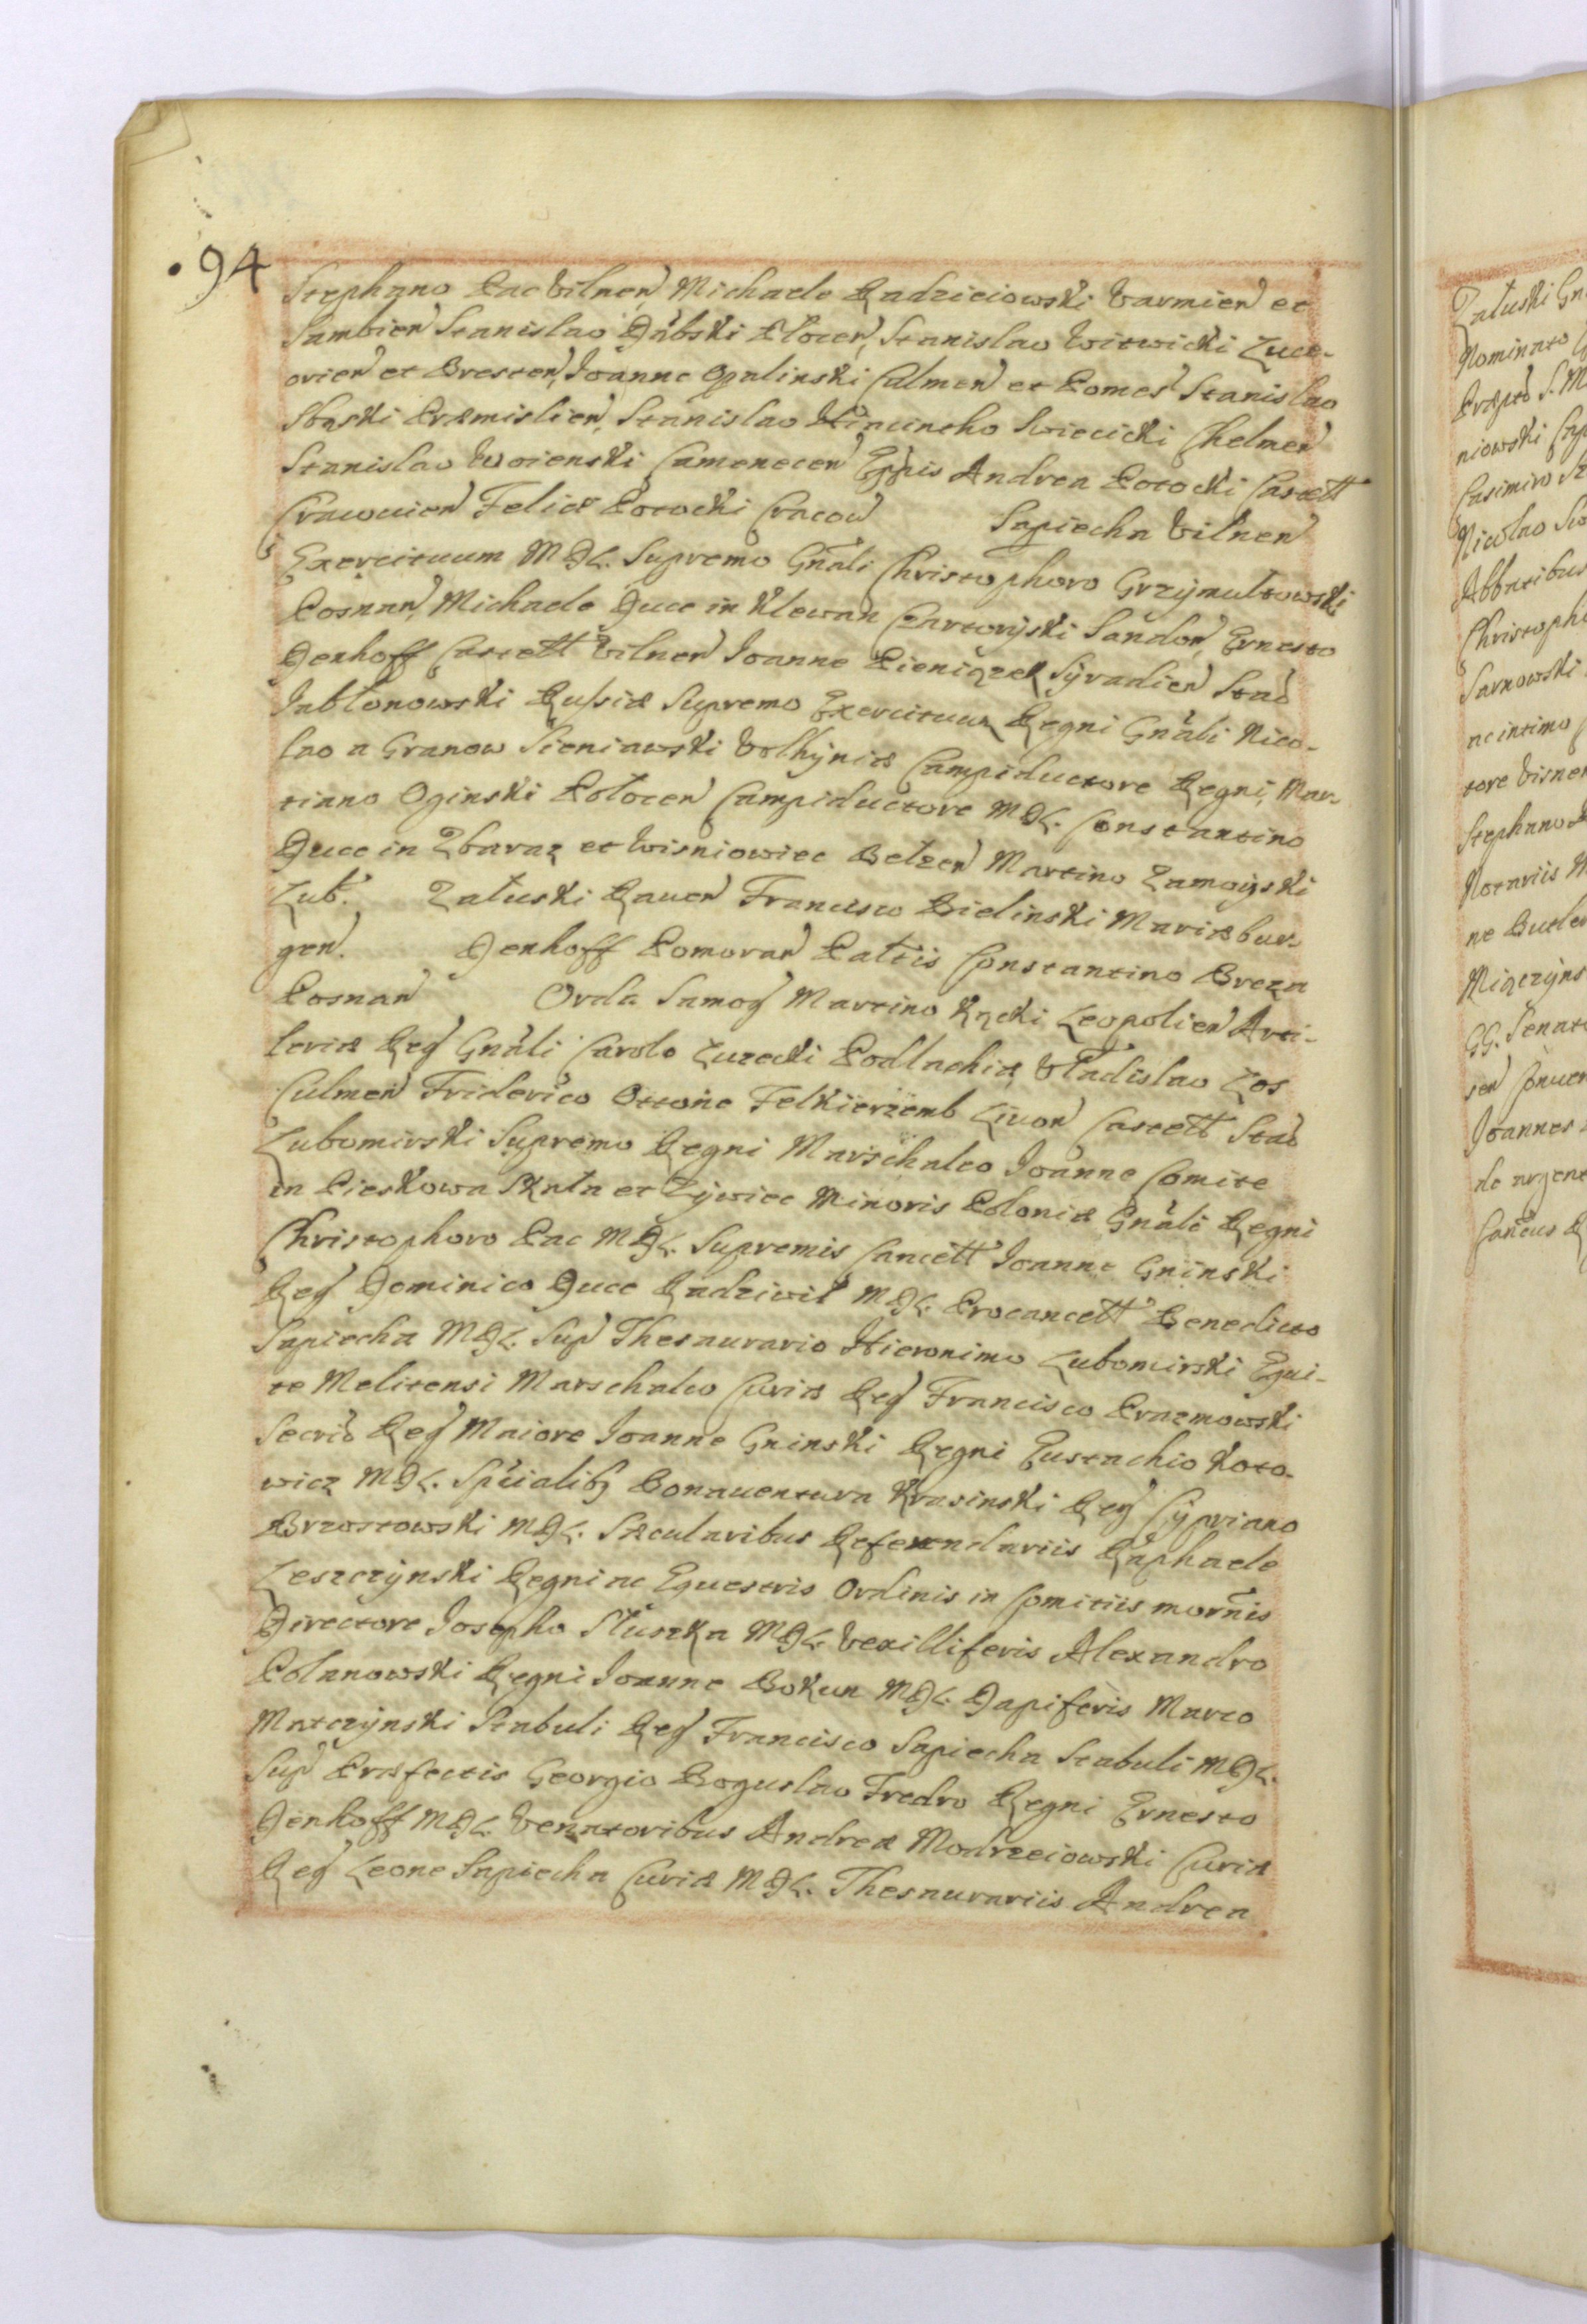 94
Stephano Pac Vilnen, Michaele Radzieiowski Varmien et
Sambien Stanislao Dąbski Plocen, Stanislao Witwicki Luce-
orien et Bresten, Ioanne Opalinski Culmen et Pomes Stanislao
Sbąski Præmislien, Stanislao Hiacincho Swiecicki Chelmen
Stanislao Woienski Camenecen Eppis Andrea Potocki Castell
Cracovien Felice Potocki Cracov Sapiecha Vilnen
Exercituum MDL. Supremo Gnali Christophoro Grzymultowski
Posnan, Michaele Duce in Klewan Czartoryski Sandom, Ernesto
Denhoff Castell Vilnen Ioanne Pieniązek Syradien Stao
Jabłonowski Russiæ Supremo Exercituum Regni Gnali Nico-
lao a Granow Sieniawski Volhyniæ Campiductore Regni, Mar-
tiano Oginski Polocen Campiductore MDL. Constantino
Duce in Zbaraz et Wisniowiec Belzen Martino Zamoyski
Lub. Załuski Raven Francisco Bielinski Mariæbur-
gen. Denhoff Pomeran Pałtis Constantino Breza
Posnan Orda Samog Martino Kącki Leopolien Arti-
leriæ Reg Gnali Carolo Luzecki Podlachiæ, Vładislao Los
Culmen Friderico Ottone Felkierzemb Livon Castell Stao
Lubomirski Supremo Regni Marschalco Ioanne Comite
in Pieskowa Skała et Zywiec Minoris Poloniæ Gnali Regni
Christophoro Pac MDL. Supremis Cancell Ioanne Gninski
Reg Dominico Duce Radziwił MDL. Procancell Benedicto
Sapiecha MDL. Sup Thesaurario Hieronimo Lubomirski Equi-
te Melitensi Marschalco Curiæ Reg Francisco Prazmowski
Secrio Reg Maiore Ioanne Gninski Regni Eustachio Koto-
wicz MDL. Spūalibq Bonaventura Krasinski Reg Cypriano
Brzostowski MDL. Sæcularibus Referendariis Raphaele
Leszczynski Regni ac Equestris Ordinis in Comitiis mornis
Directore Iosepho Słuszka MDL. Vexilliferis Alexandro
Polanowski Regni Ioanne Bokun MDL. Dapiferis Marco
Matczynski Stabuli Reg Francisco Sapiecha Stabuli MDL.
Sup Præfectis Georgio Boguslao Fredro Regni Ernesto
Denhoff MDL. Venatoribus Andrea Modrzeiowski Curiæ
Reg Leone Sapiecha Curiæ MDL. Thesaurariis Andrea
Załuski
Nominato
niowski
Casimiro
Nicolao
Abbatibus
Sarnowski
ac intimo
Stephano
Notariis
Ioannes
de argent